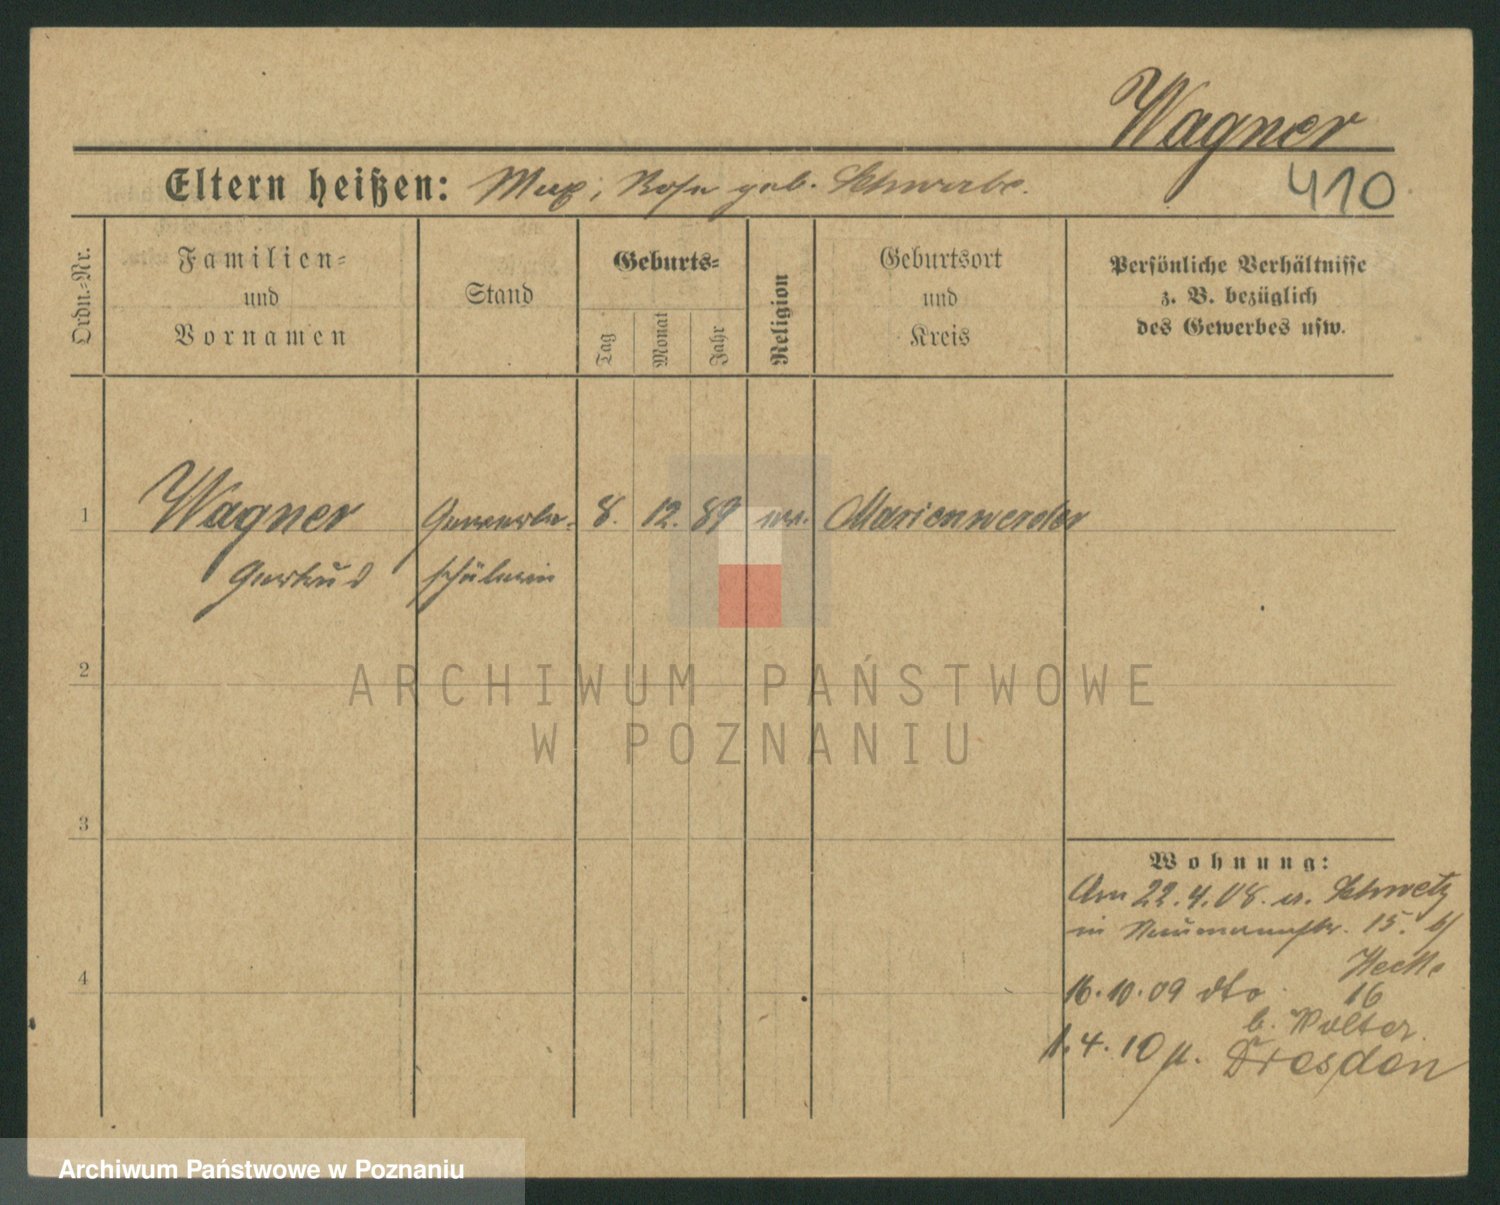 Wagner
410
Eltern heißen: Max, Rosa geb. Schwabe.
Ordn.-Nr.
Familien-
und
Vornamen
Stand
Geburts-
Tag
Monat
Jahr
Religion
Geburtsort
und
Kreis
Persönliche Verhältnisse
z. B. bezüglich
des Gewerbes usw.
1
Wagner
Gewerbe-
8.
12.
89
Marienwerder
Gertrud
schülerin
2
3
4
Wohnung:
Am 22.4.08. Schwetz
in Naumannstr. 15. b/
16.10.09 dto
16
b. Wolter
1.4.10 Dresden
ARCHIWUM PAŃSTWOWE
W POZNANIU
Archiwum Państwowe w Poznaniu